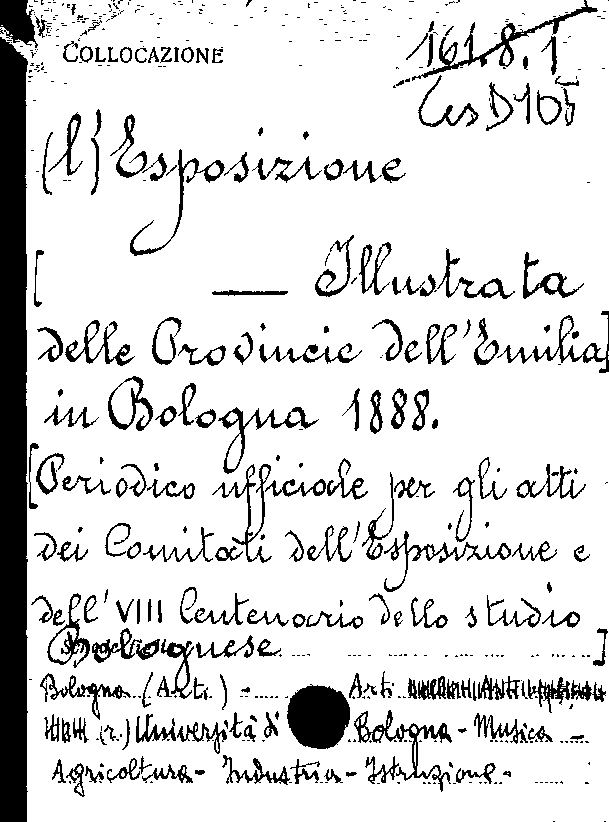 COLLOCAZIONE
161.8.1
Ces D 105
(l') Esposizione
[ — Illustrata
delle Provincie dell'Emilia]
in Bologna 1888.
[Periodico ufficiale per gli atti
dei Comitati dell'Esposizione e
dell' VIII Centenario dello studio
Bolognese ]
Bologna (Arti) - Arti
(r.) Università di Bologna - Musica -
Agricoltura - Industria - Istruzione -